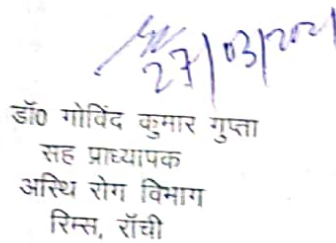 27/03/2021
डॉ0 गोविंद कुमार गुप्ता
सह प्राध्यापक
अस्थि रोग विभाग
रिम्स, राँची